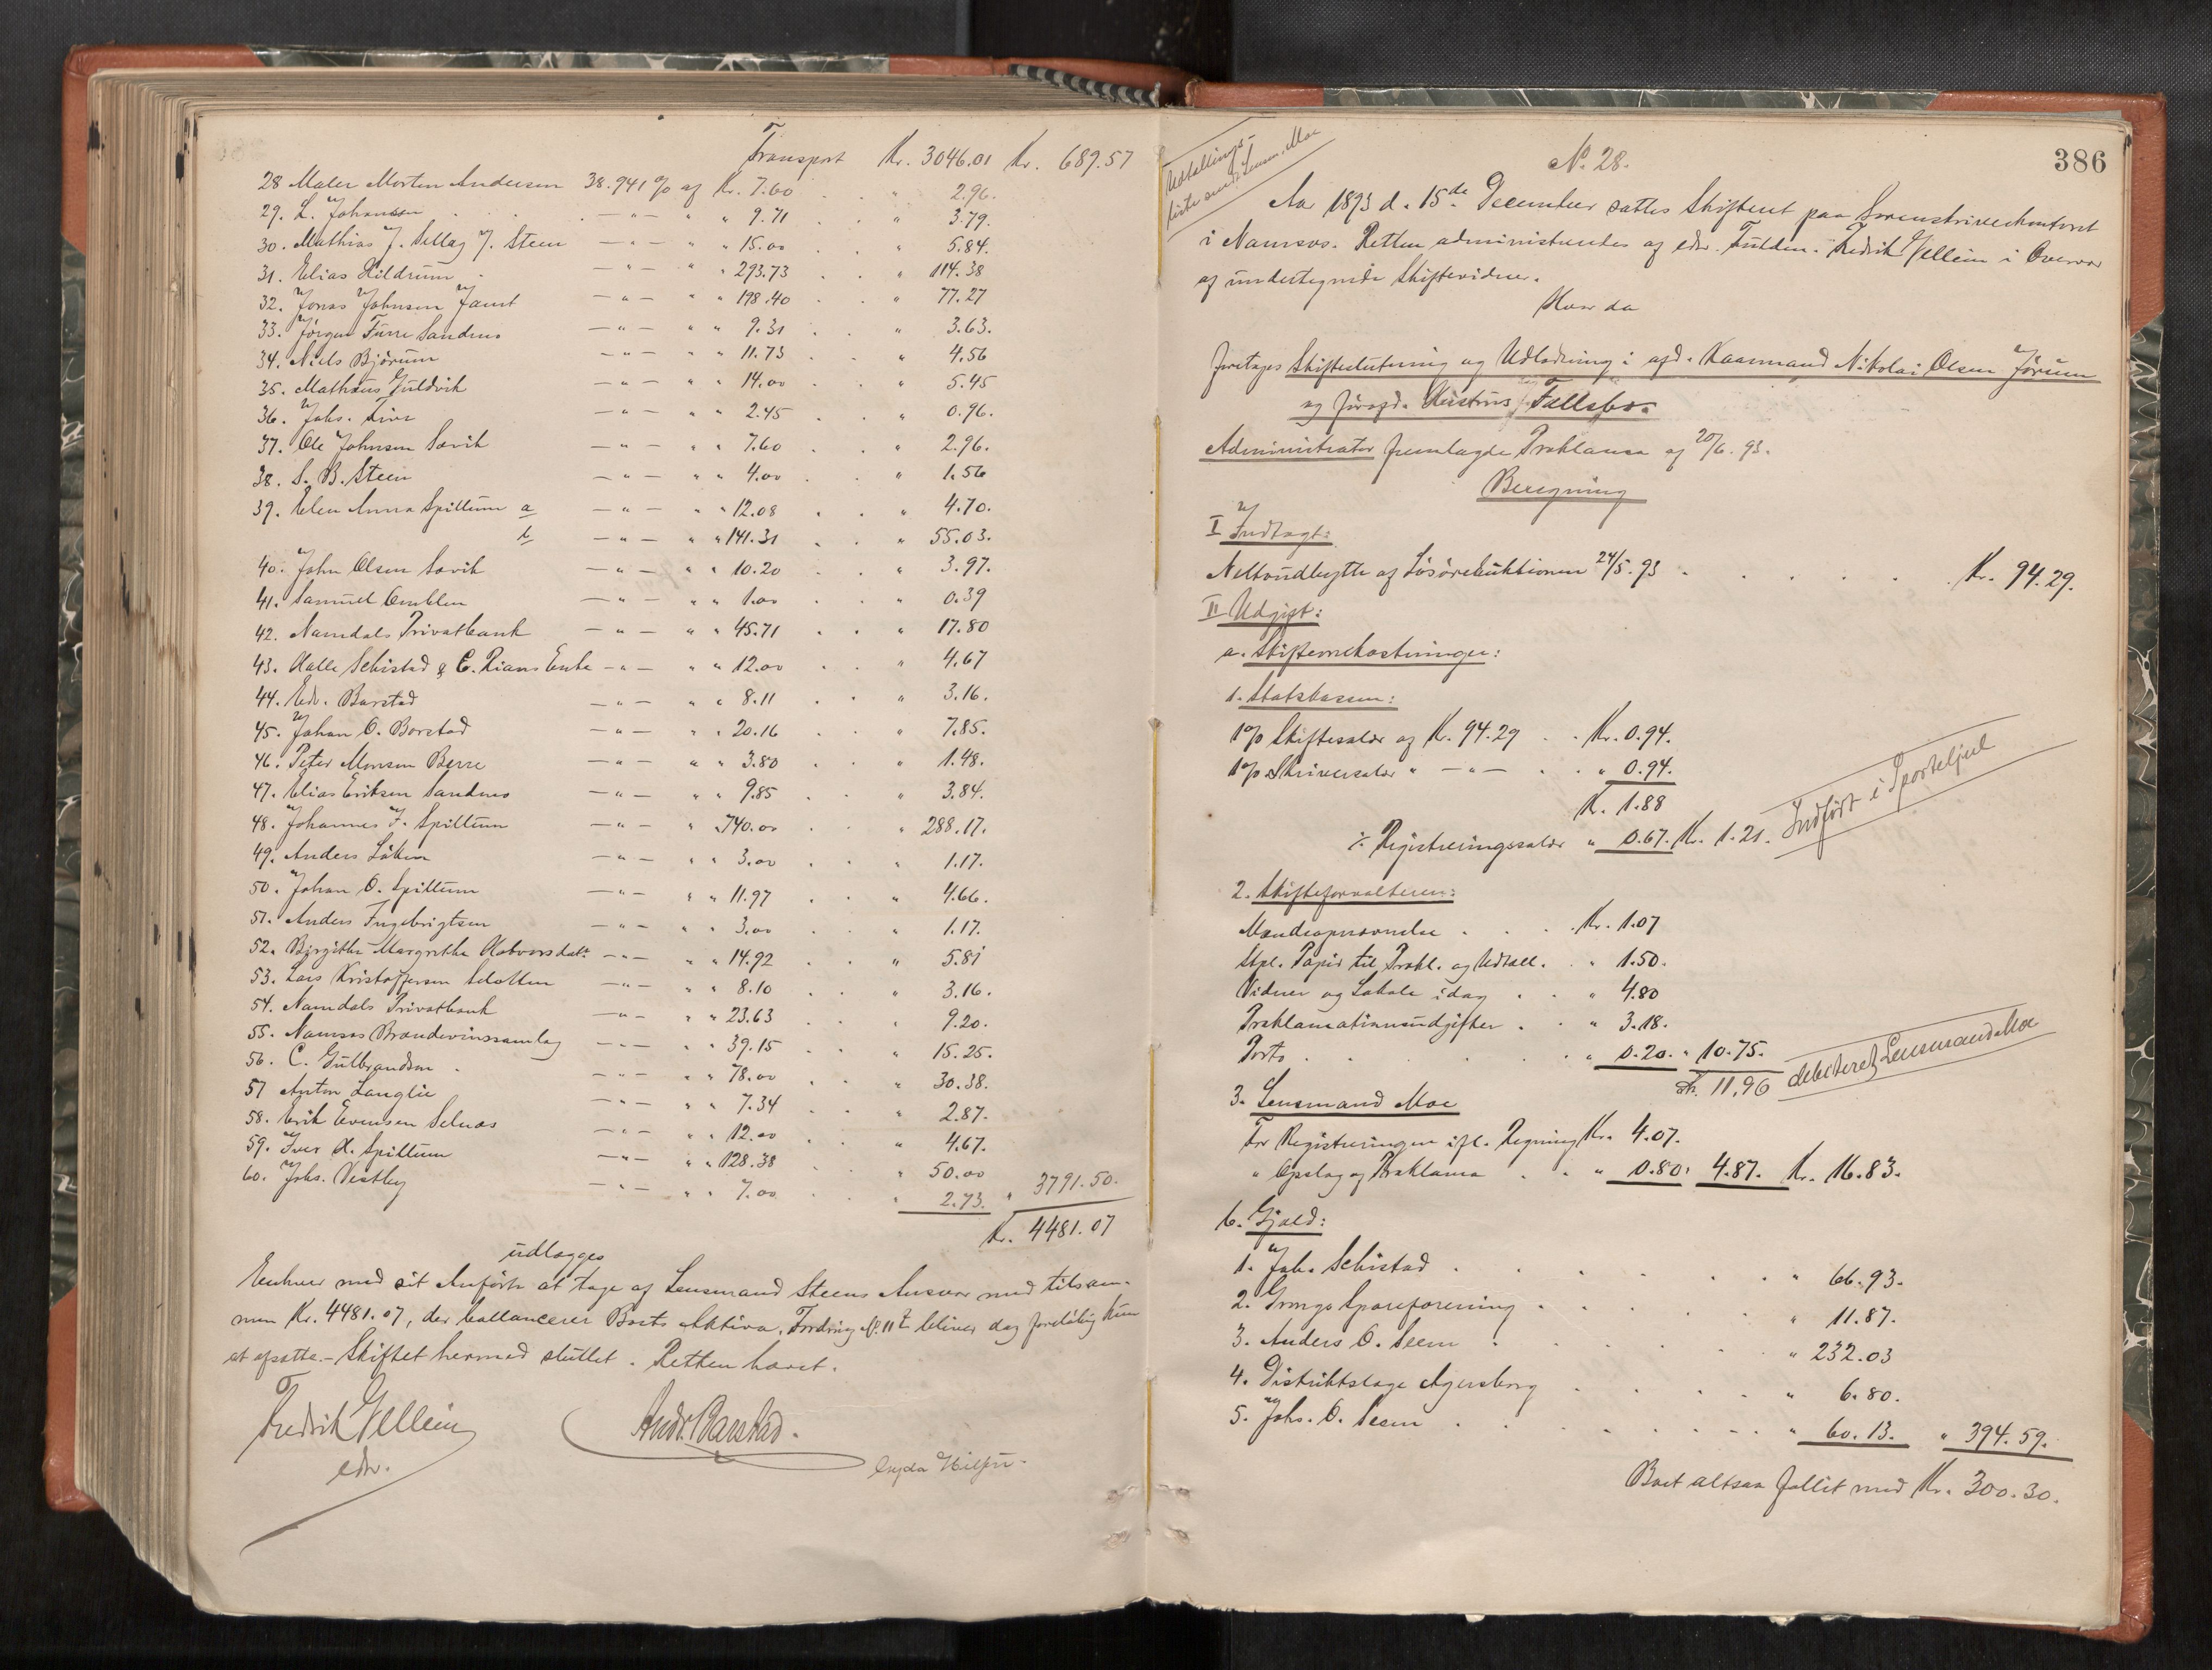 Transport Kr. 3046.01 Kr. 689.57
28 Maler Morten Andersen 38.941% af Kr. 7.60 . . " 2.96.
29. L. Johansen . . . — " — " " 9.71 . . " 3.79.
30. Mathias J. Sellæg J. Steen — " — " " 15.00 . . " 5.84.
31. Elias Hildrum . — " — " " 293.73 . . " 114.38
32. Jonas Johnsen Jamt — " — " " 198.40 . . " 77.27
33. Jørgen Furre Sandnes — " — " " 9.31 . . " 3.63.
34. Niels Bjørum — " — " " 11.73 . . " 4.56
35. Mathæus Guldvik — " — " " 14.00 . . " 5.45
36. Johs. Lior — " — " " 2.45 . . " 0.96.
37. Ole Johnsen Savik — " — " " 7.60 . . " 2.96.
38. S. B. Steen — " — " " 4.00 . . " 1.56
39. Elen Anna Spillum a — " — " " 12.08 . . " 4.70.
b — " — " " 141.31 . . " 55.03.
40. John Olsen Savik — " — " " 10.20 . . " 3.97.
41. Samuel Emblen — " — " " 1.00 . . " 0.39
42. Namdals Privatbank — " — " " 45.71 . . " 17.80
43. Halle Schistad & C. Rians Enke — " — " " 12.00 . . " 4.67
44. Edv. Barstad — " — " " 8.11 . . " 3.16.
45. Johan O. Borstad — " — " " 20.16 . . " 7.85.
46. Peter Monsen Berre — " — " " 3.80 . . " 1.48.
47. Elias Eriksen Sandnes — " — " " 9.85 . . " 3.84.
48. Johannes J. Spillum — " — " " 740.00 . . " 288.17.
49. Anders Løkken — " — " " 3.00 . . " 1.17.
50. Johan O. Spillum — " — " " 11.97 . . " 4.66.
51. Anders Ingebrigtsen — " — " " 3.00 . . " 1.17.
52. Birgithe Margrethe Halvorsdatr — " — " " 14.92 . . " 5.81
53. Lars Kristoffersen — " — " " 8.10 . . " 3.16.
54. Namdals Privatbank — " — " " 23.63 . . " 9.20.
55. Namsos Brændevinssamlag — " — " " 39.15 . . " 15.25.
56. C. Gulbrandson . — " — " " 78.00 . . " 30.38.
57 Anton Langlie — " — " " 7.34 . . " 2.87.
58. Erik Evensen Selnæs — " — " " 12.00 . . " 4.67.
59. Iver H. Spillum — " — " " 128.38 . . " 50.00
60. Johs. Vestby — " — " " 7.00 . . " 2.73. " 3791.50.
Kr. 4481.07
udlægges
Enhver med sit Anførte at tage af Lensmand Steens Ansvar med tilsam-
men Kr. 4481.07, der ballancerer Boets Aktiva. Fordring No. 11 bliver dog foreløbig kun
at afsætte. – Skiftet hermed sluttet. Retten hævet.
Fredrik Gellein
edv.
Andr. Barstad.
386
Udtallings-
liste send. Lensm. Moe
No. 28.
Aar 1893 d. 15de December sattes Skifteret paa Sorenskriverkontoret
i Namsos. Retten administreredes af edv. Fuldm. Fredrik Gellein i Overvær
af undertegnede Skiftevidner.
Hvor da
foretoges Skifteslutning og Udlodning i afd. Kaarmand Nikolai Olsen Jørum
og førafd. Hustrus Fællesbo.
Administrator fremlagde Proklama af 20/6. 93.
Beregning
I Indtægt:
Nettoudbytte af Løsøreauktionen 24/5. 93 . . . . . . Kr. 94.29.
II Udgift:
a. Skifteomkostninger:
1. Statskassen:
1% Skiftesalær af Kr. 94.29 . . Kr. 0.94.
1% Skriversalær " — " — . . " 0.94.
Kr. 1.88
÷ Registreringssalær " 0.67. Kr. 1.21. Indført i Sporteljnl
2. Skifteforvalteren:
Mændsopnævnelse . . . Kr. 1.07
Stpl. Papir til Prokl. og Udtall. . " 1.50.
Vidner og Lokale idag . . " 4.80
Proklamationsudgifter . . " 3.18.
Porto . . . . . " 0.20. " 10.75.
Kr. 11.96 debiteret Lensmand Moe
3. Lensmand Moe
For Registreringen ifl. Regning Kr. 4.07.
" Opslag af Proklama . . " 0.80. 4.87. Kr. 16.83.
b. Gjæld:
1. Joh. Schistad . . . . . . " 66.93.
2. Grongs Spareforening . . . . . " 11.87.
3. Anders O. Seem . . . . . " 232.03
4. Distriktslæge Agersborg . . . . " 6.80.
5. Johs. O. Seem . . . . . . " 60.13. " 394.59.
Boet altsaa fallit med Kr. 300.30.